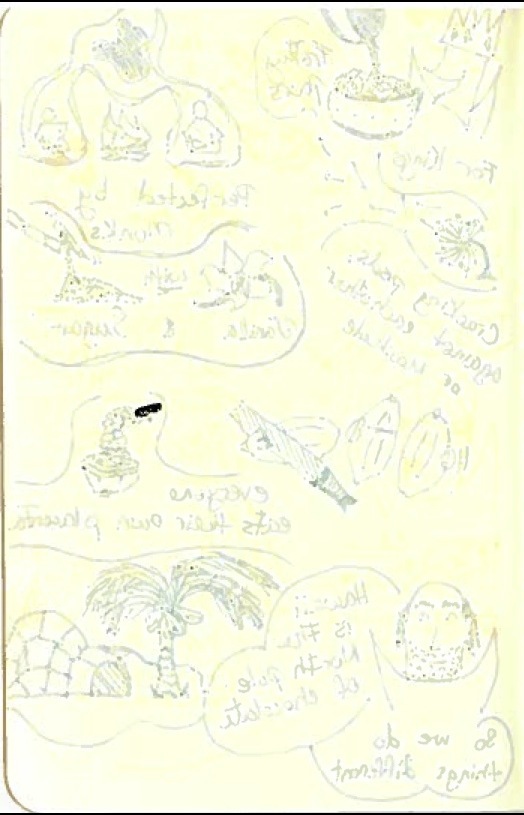 For Kings
Perfected by
Monks
with
Vanila & Sugar
Cracking pods
against eachother
or machete
everyone
eats their own placenta.
Hawaii
is the
North pole
of chocolate
So we do
things different